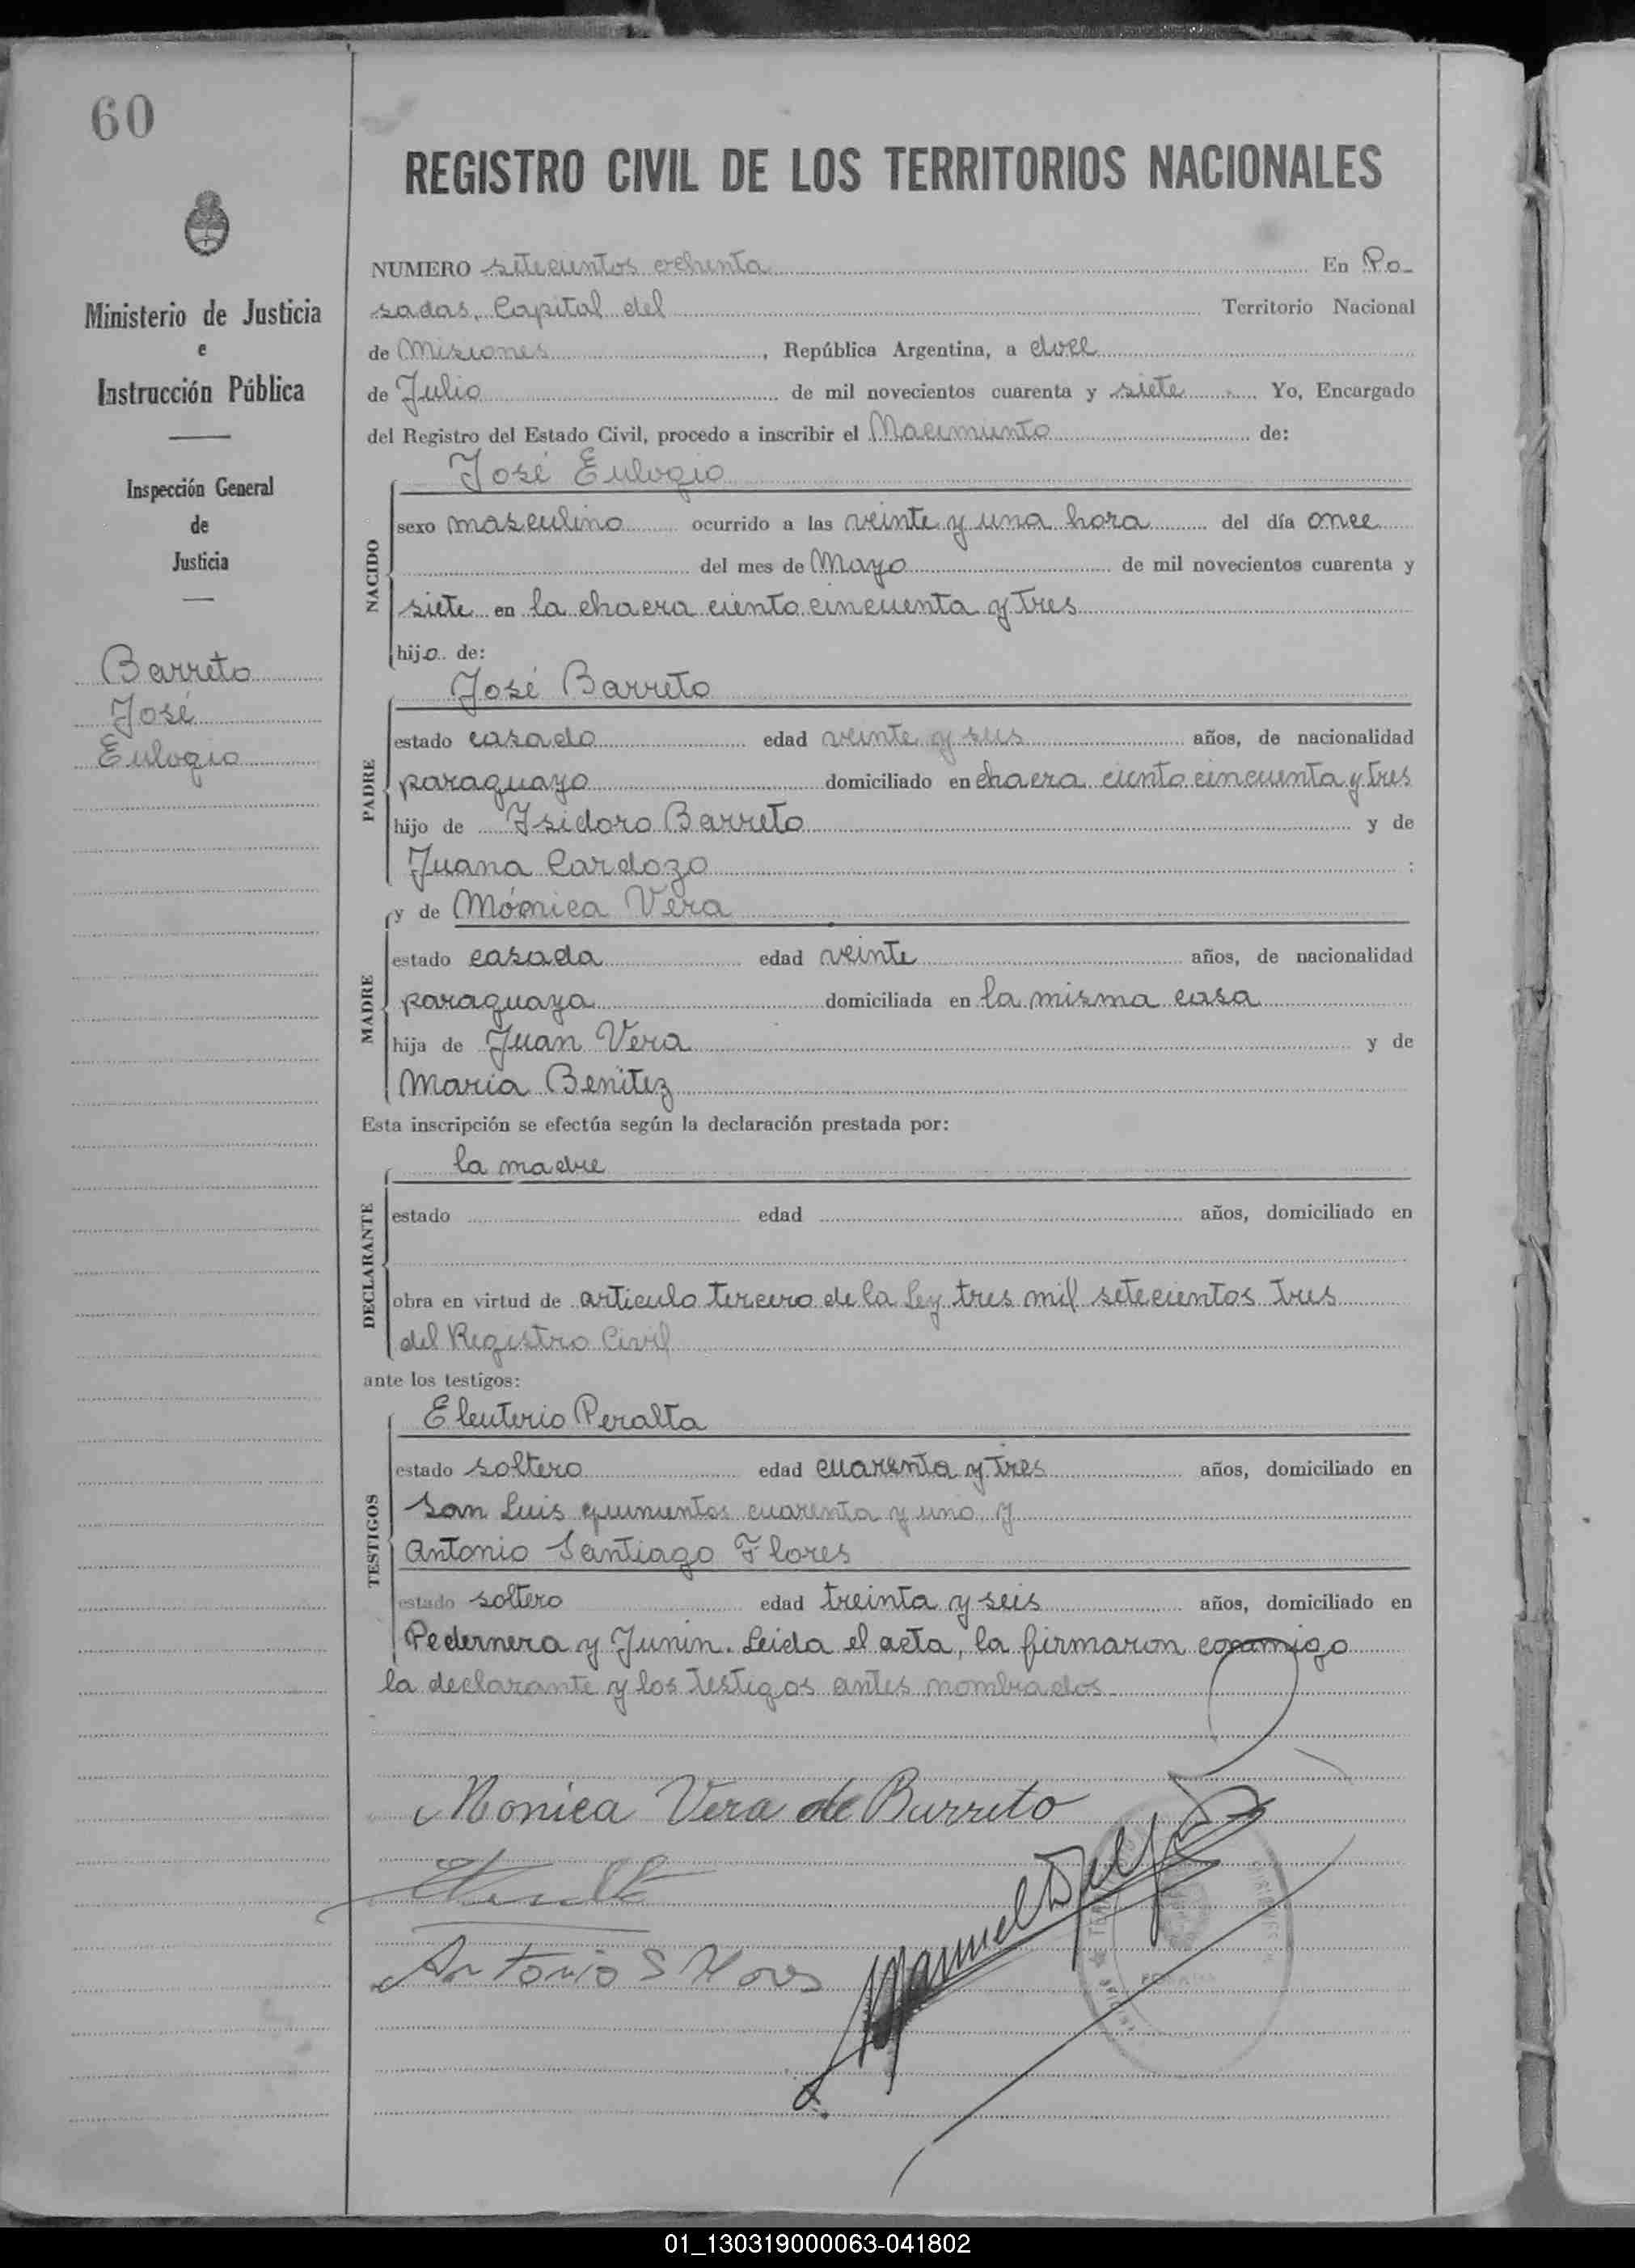 60
Ministerio de Justicia
e
Instrucción Pública
Inspección General
de
Justicia
Barreto
José
Eulogio
REGISTRO CIVIL DE LOS TERRITORIOS NACIONALES
NUMERO setecientos ochenta En Po-
sadas, Capital del Territorio Nacional
de Misiones, República Argentina, a doce
de Julio de mil novecientos cuarenta y siete. Yo, Encargado
del Registro del Estado Civil, procedo a inscribir el Nacimiento de:
José Eulogio
NACIDO
sexo masculino ocurrido a las veinte y una hora del día once
del mes de Mayo de mil novecientos cuarenta y
siete en la chacra ciento cincuenta y tres
hijo de:
José Barreto
PADRE
estado casado edad veinte y seis años, de nacionalidad
paraguayo domiciliado en chacra ciento cincuenta y tres
hijo de Isidoro Barreto y de
Juana Cardozo :
y de Mónica Vera
MADRE
estado casada edad veinte años, de nacionalidad
paraguaya domiciliada en la misma casa
hija de Juan Vera y de
Maria Benitez
Esta inscripción se efectúa según la declaración prestada por:
la madre
DECLARANTE
estado edad años, domiciliado en
obra en virtud de articulo tercero de la Ley tres mil setecientos tres
del Registro Civil
ante los testigos:
Eleuterio Peralta
TESTIGOS
estado soltero edad cuarenta y tres años, domiciliado en
San Luis quinientos cuarenta y uno y
Antonio Santiago Flores
estado soltero edad treinta y seis años, domiciliado en
Pedernera y Junin. Leida el acta, la firmaron conmigo
la declarante y los testigos antes nombrados
Monica Vera de Barreto
Antonio S Flores
Manuel
01_130319000063-041802